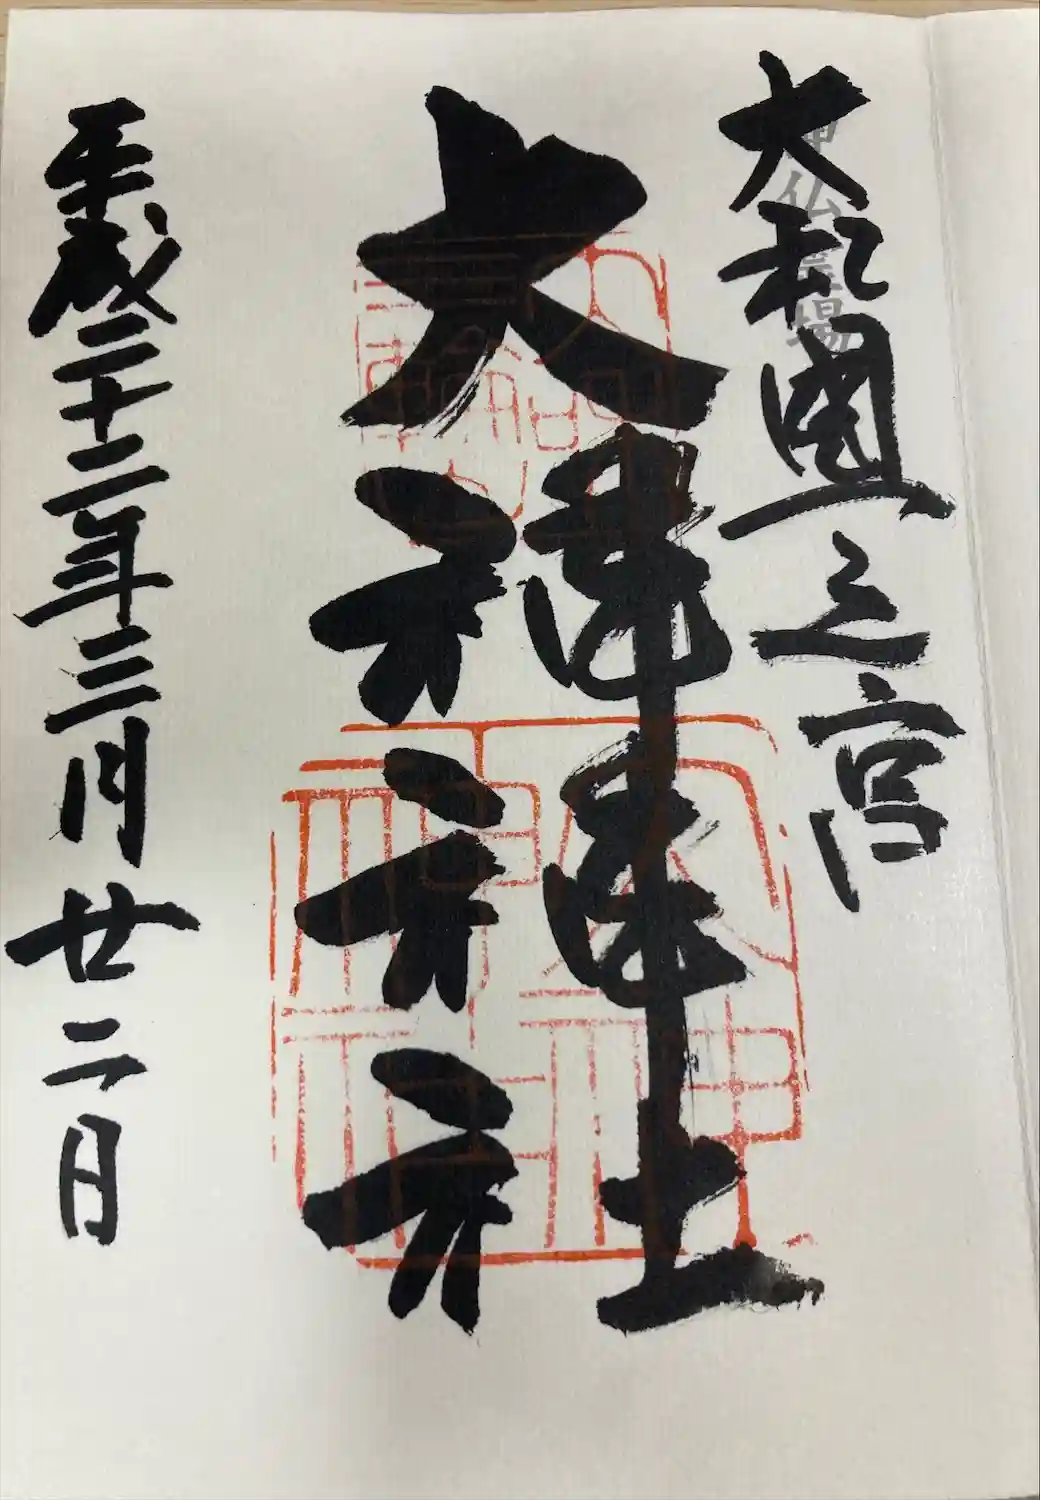 神仏霊場
大和國一之宮
大神神社
平成二十二年三月廿二日